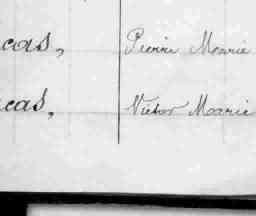 cas, Pierre Marie
cas, Victor Marie